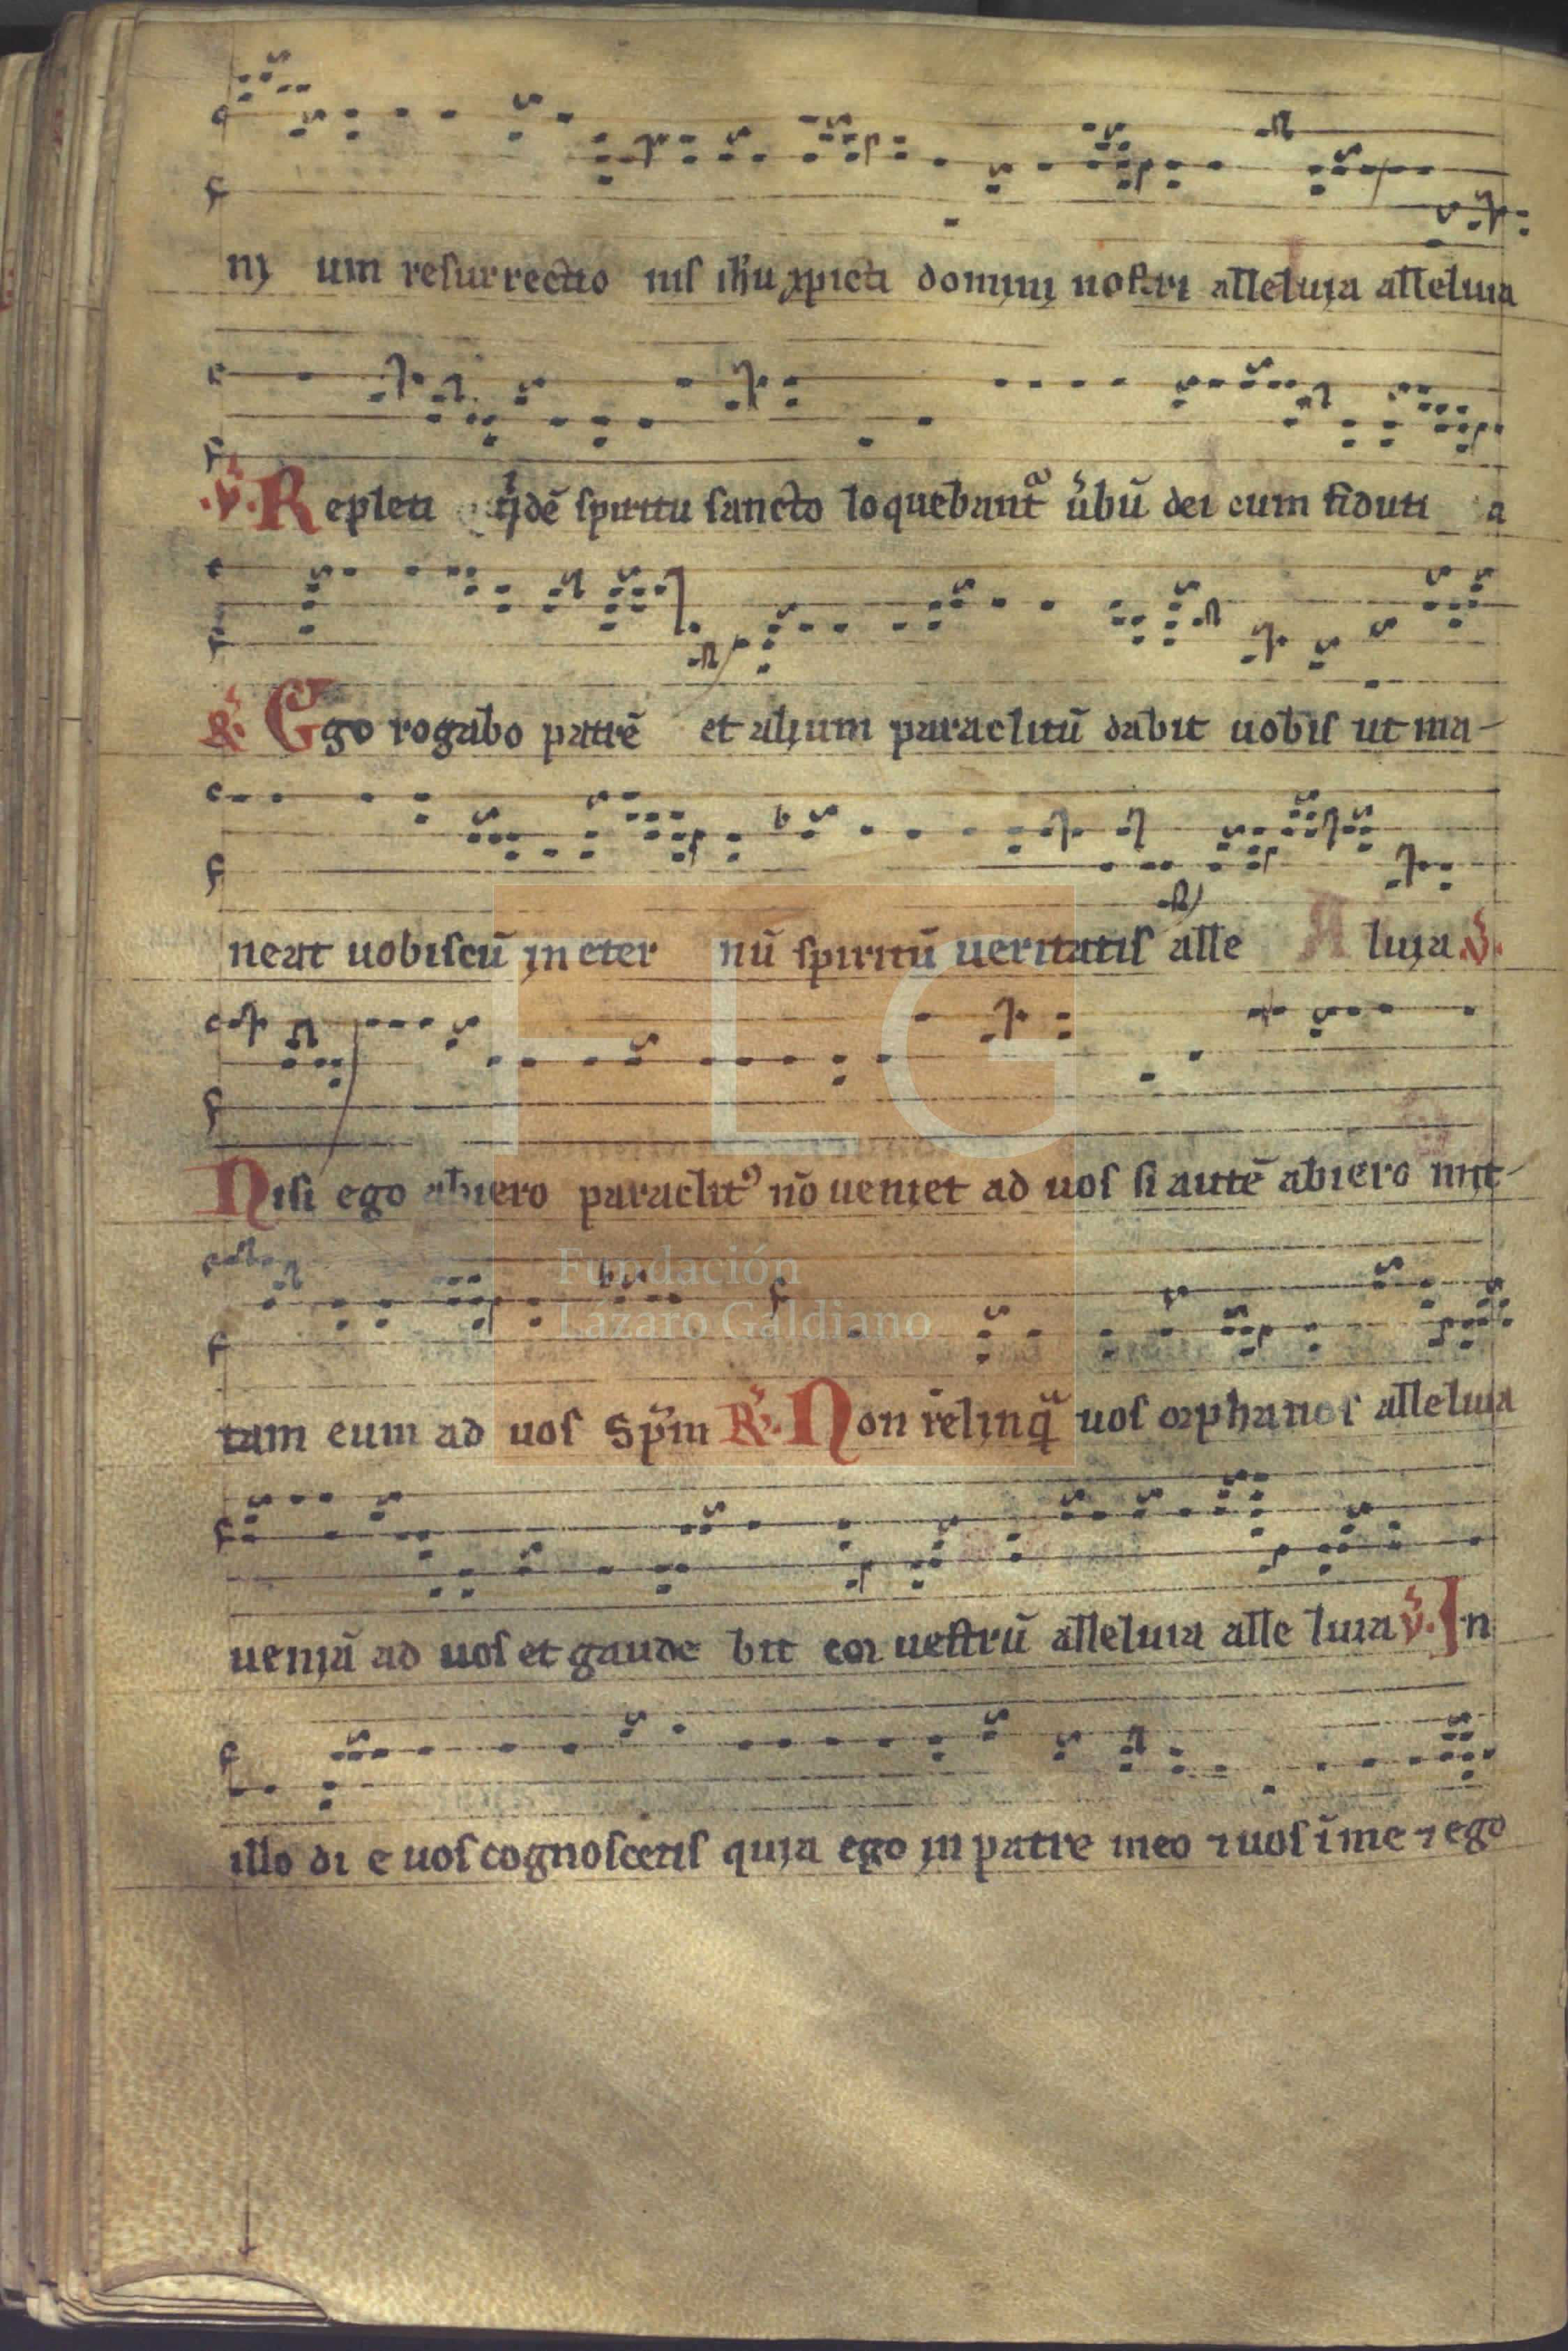 nj um resurrectio nis ihu xpicti domini nostri alleluja alleluia
.V. Repleti qdē spiritu sancto loquebant ůbū dei cum fiduti a
R. Ego rogabo patrē et aljum paraclitū dabit uobis ut ma-
neat uobiscū jn eter nū spiritū ueritatis alle A luja .V.
Nisi ego abiero paraclitꝰ nō uenjet ad uos si autē abiero mjt-
tam eum ad uos Spm R. Non relinq̄ uos orphanos alleluia
uenjā ad uos et gaude bit cor uestrū alleluia alle luia V. In
illo di e uos cognoscetis quja ego jn patre meo ⁊ uos ī me ⁊ ego
Fundación
Lázaro Galdiano
FLG